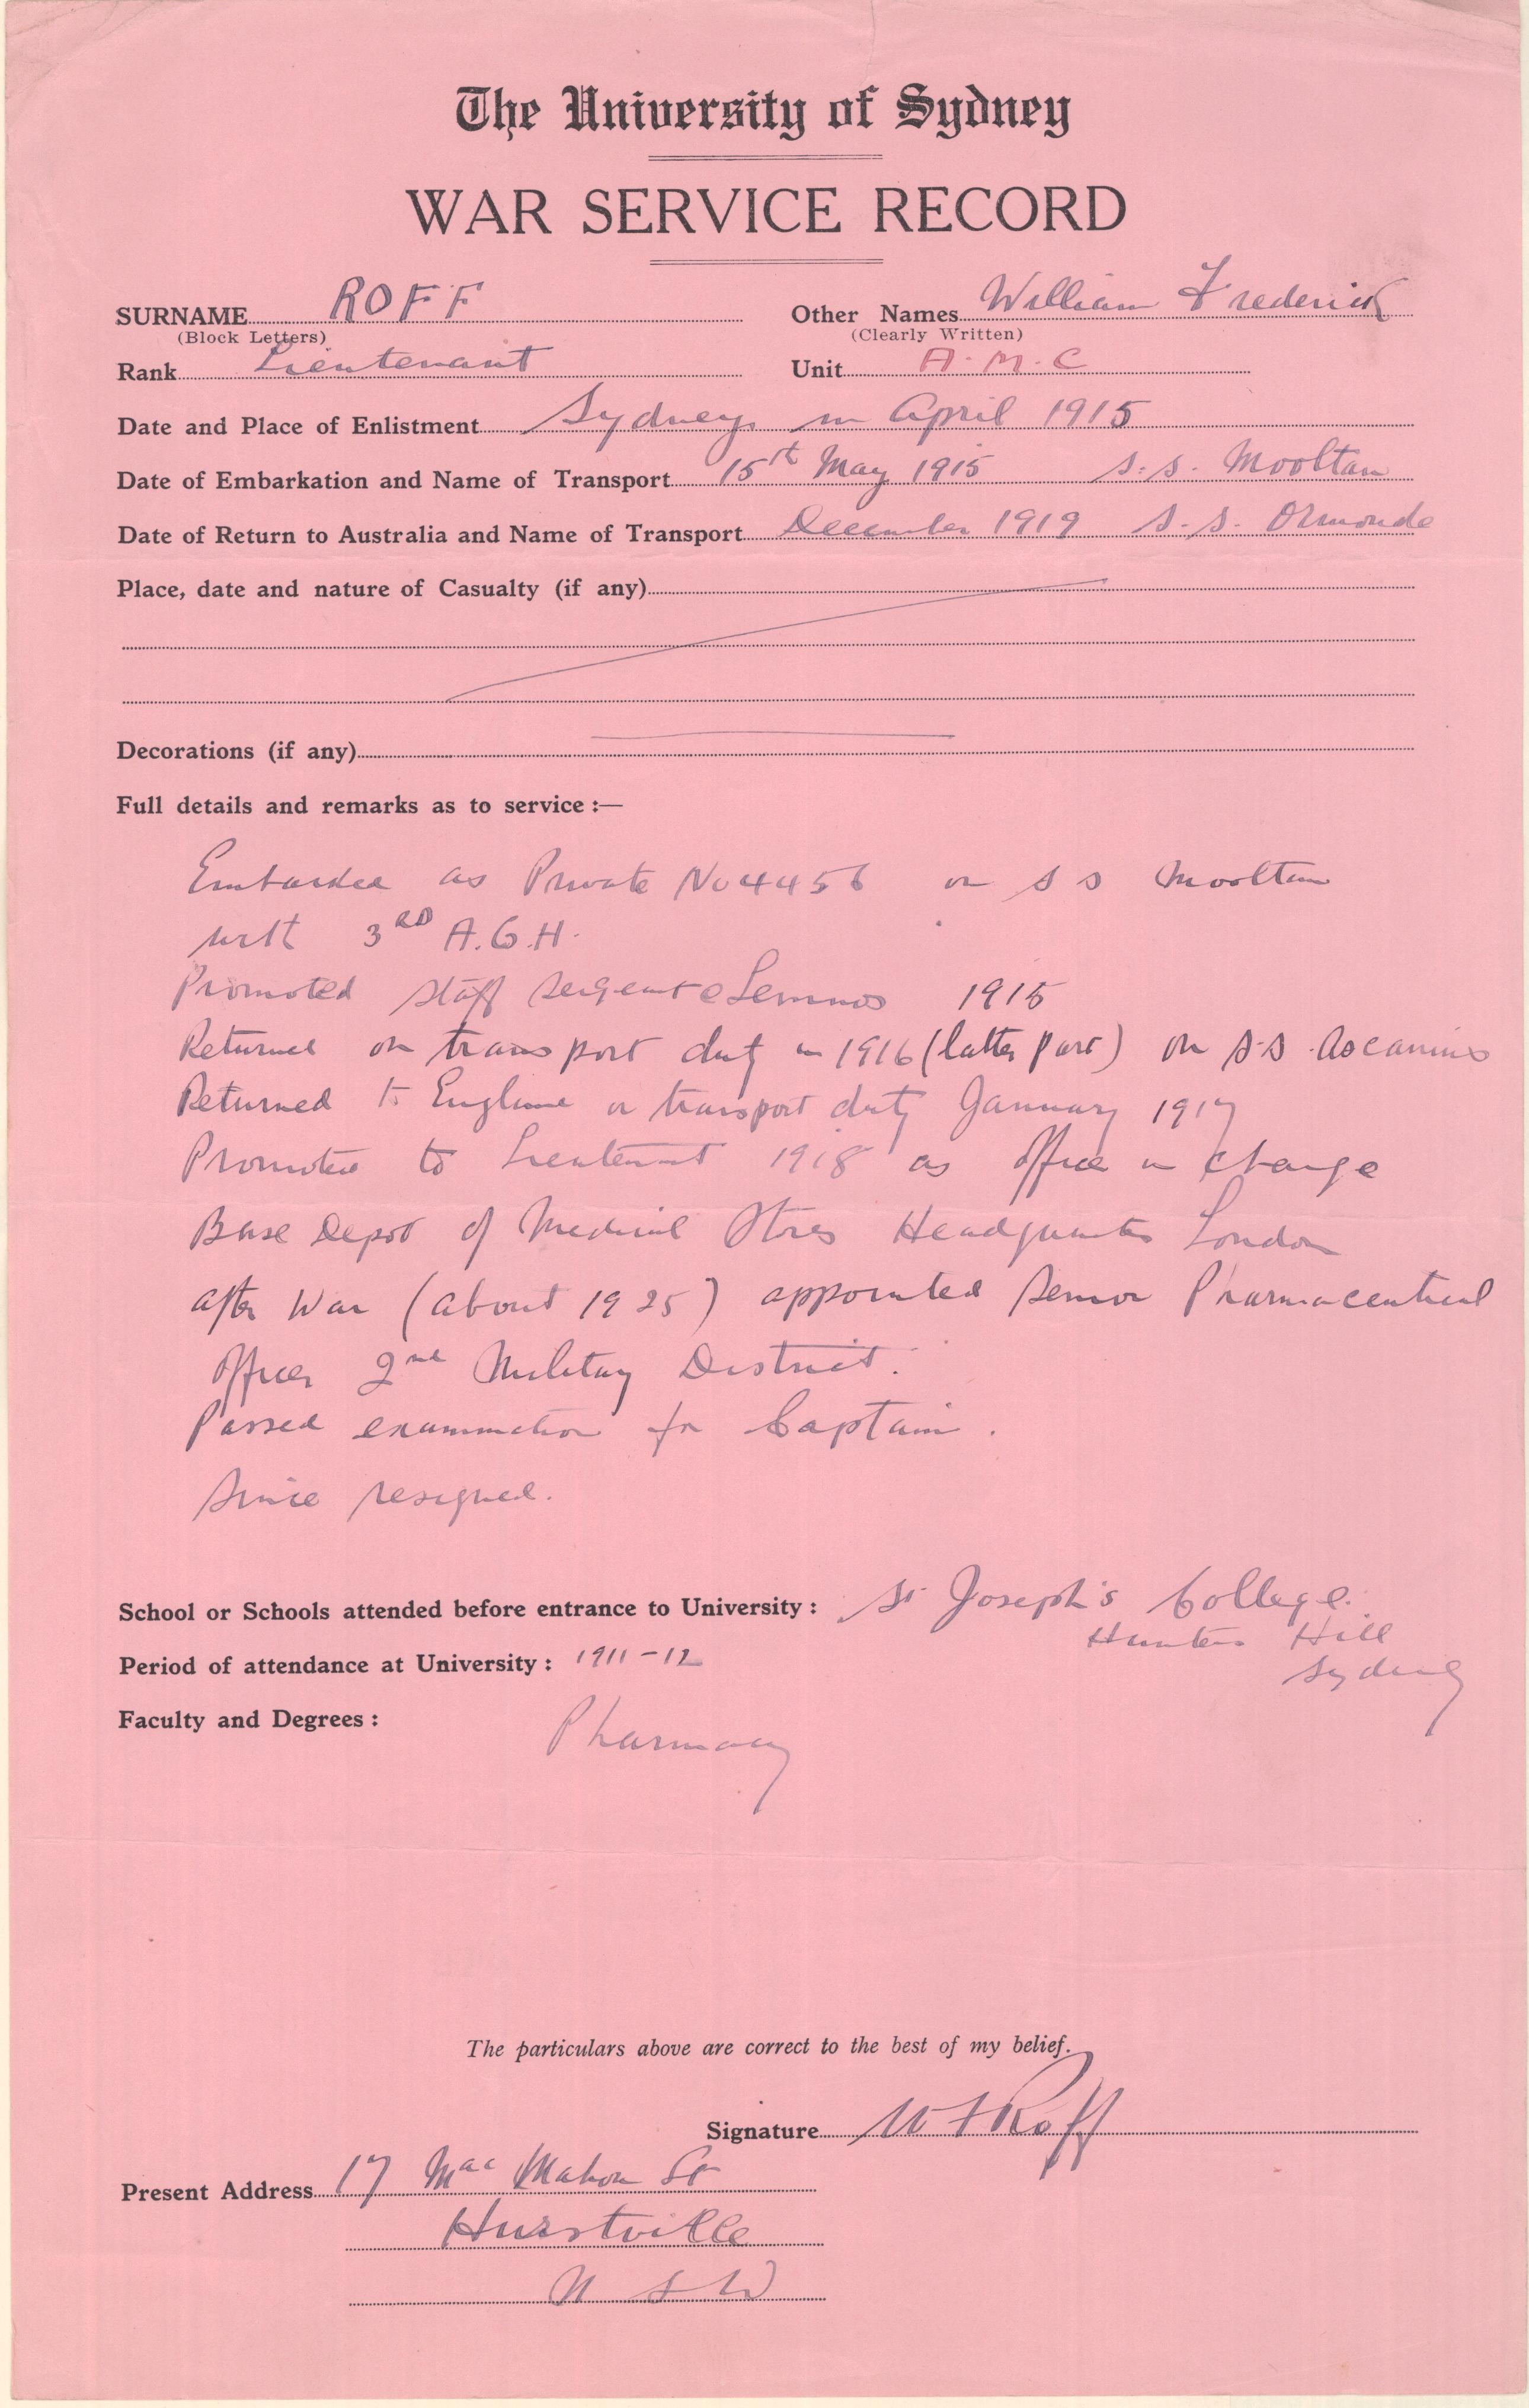 The University of Sydney
WAR SERVICE RECORD
SURNAME ROFF Other Names William Frederick
(Block Letters) (Clearly Written)
Rank Lieutenant Unit A.M.C
Date and Place of Enlistment Sydney in April 1915
Date of Embarkation and Name of Transport 15th May 1915 S.S. Mooltan
Date of Return to Australia and Name of Transport December 1919 S.S. Ormonde
Place, date and nature of Casualty (if any)
Decorations (if any)
Full details and remarks as to service :—
Embarked as Private No 4456 on S S Mooltan
with 3RD A.G.H.
Promoted Staff Sergeant @ Lemnos 1915
Returned on transport duty in 1916 (latter part) on S.S. Ascanius
Returned to England on transport duty January 1917
Promoted to Lieutenant 1918 as Officer in Charge
Base Depot of Medical Stores Headquarters London
after War (about 1925) appointed Senior Pharmaceutical
Officer 2nd Military District.
Passed examination for Captain.
Since resigned.
School or Schools attended before entrance to University : St Joseph's College.
Hunters Hill
Sydney
Period of attendance at University : 1911-12
Faculty and Degrees : Pharmacy
The particulars above are correct to the best of my belief.
Signature W F Roff
Present Address 17 Mac Mahon St
Hurstville
N S W